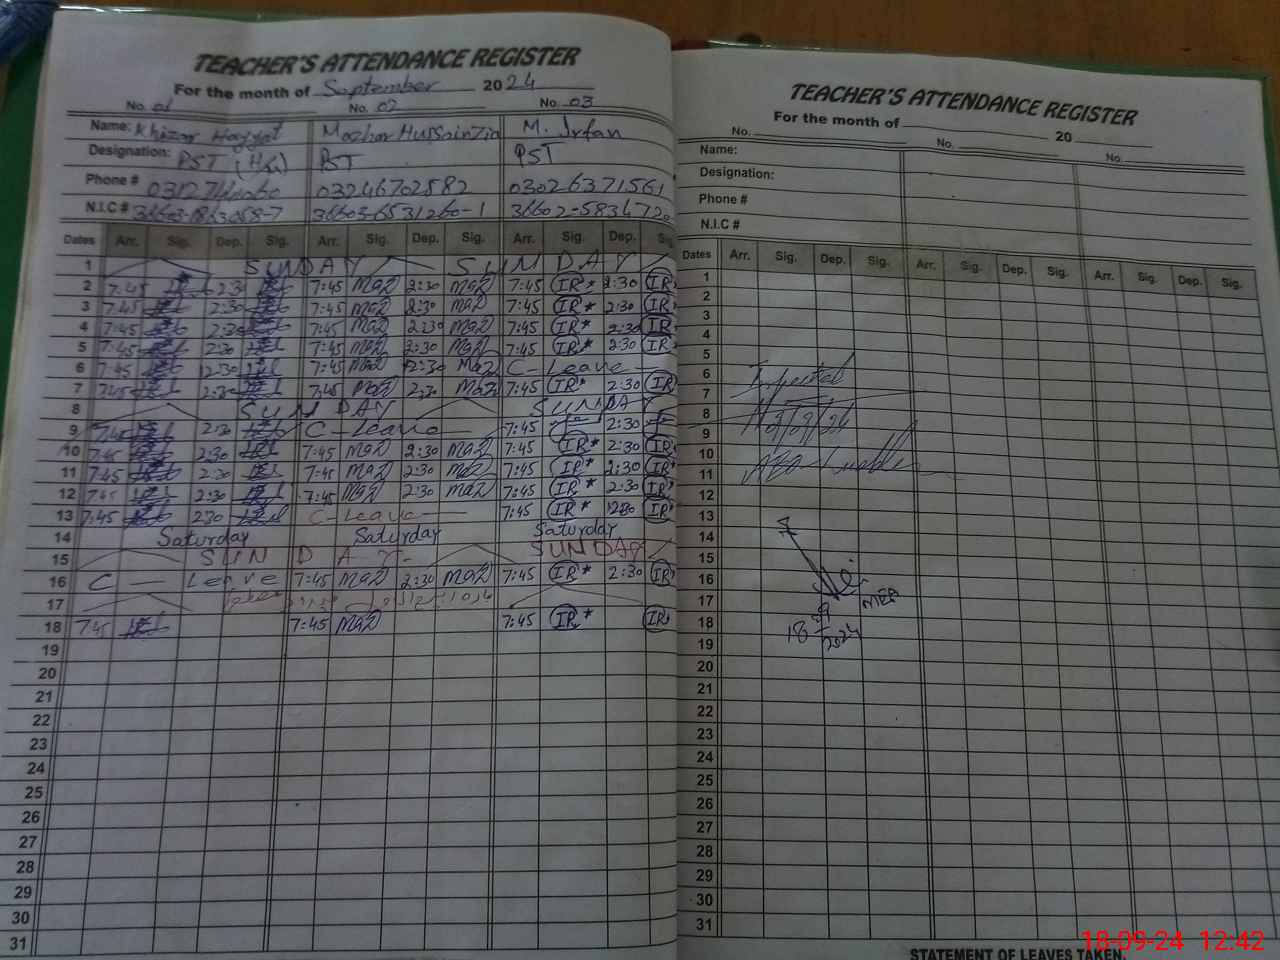 TEACHER'S ATTENDANCE REGISTER
For the month of September 2024
No. 01 No. 02 No. 03
Name: Khizar Hayyat Mazhar Hussain Zia M. Irfan
Designation: PST PST PST
Phone # 03246702582 03026371561
N.I.C # 36603-6531260-1
Dates Arr. Sig. Dep. Sig. Arr. Sig. Dep. Sig. Arr. Sig. Dep. Sig.
1 SUNDAY SUNDAY
2 7:45 2:30 7:45 MaZ 2:30 MaZ 7:45 IR* 2:30 IR*
3 7:45 2:30 7:45 MaZ 2:30 MaZ 7:45 IR* 2:30 IR*
4 7:45 2:30 7:45 MaZ 2:30 MaZ 7:45 IR* 2:30 IR*
5 7:45 2:30 7:45 MaZ 2:30 MaZ 7:45 IR* 2:30 IR*
6 7:45 2:30 7:45 MaZ 2:30 MaZ C-Leave
7 7:45 2:30 7:45 MaZ 2:30 MaZ 7:45 IR* 2:30 IR*
8 SUNDAY SUNDAY
9 7:45 2:30 C-Leave 7:45 2:30
10 7:45 2:30 7:45 MaZ 2:30 MaZ 7:45 IR* 2:30 IR*
11 7:45 2:30 7:45 MaZ 2:30 MaZ 7:45 IR* 2:30 IR*
12 7:45 2:30 7:45 MaZ 2:30 MaZ 7:45 IR* 2:30 IR*
13 7:45 230 C-Leave 7:45 IR* IR*
14 Saturday Saturday Saturday
15 SUNDAY SUNDAY
16 C - Leave 7:45 MaZ 2:30 MaZ 7:45 IR* 2:30 IR*
17
18 7:45 7:45 MaZ 7:45 IR* IR*
19
20
21
22
23
24
25
26
27
28
29
30
31
TEACHER'S ATTENDANCE REGISTER
For the month of 20
No. No. No.
Name:
Designation:
Phone #
N.I.C #
Dates Arr. Sig. Dep. Sig. Arr. Sig. Dep. Sig. Arr. Sig. Dep. Sig.
1
2
3
4
5
6
7
8
9
10
11
12
13
14
15
16
17
18 18 9 2024
19
20
21
22
23
24
25
26
27
28
29
30
31
STATEMENT OF LEAVES TAKEN.
18-09-24 12:42